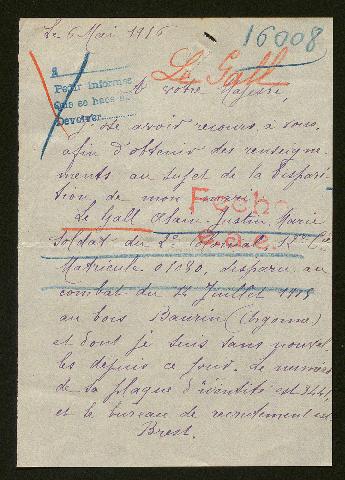 Le 6 Mai 1916
16008
Le Gall
A votre Majesté,
Pedir informes
Que se hace
Devolver
J'ose avoir recours à vous,
afin d'obtenir des renseigne
ments au sujet de la dispari
tion de mon mari
Le Gall Alain Justin Marie
Soldat du 2e Colonial 12e Cie
Matricule 01080, disparu au
combat du 14 Juillet 1915
au bois Baurin (Argonne)
et dont je suis sans nouvel
les depuis ce jour. Le numéro
de sa plaque d'identité est 3441,
et le bureau de recrutement est
Brest.